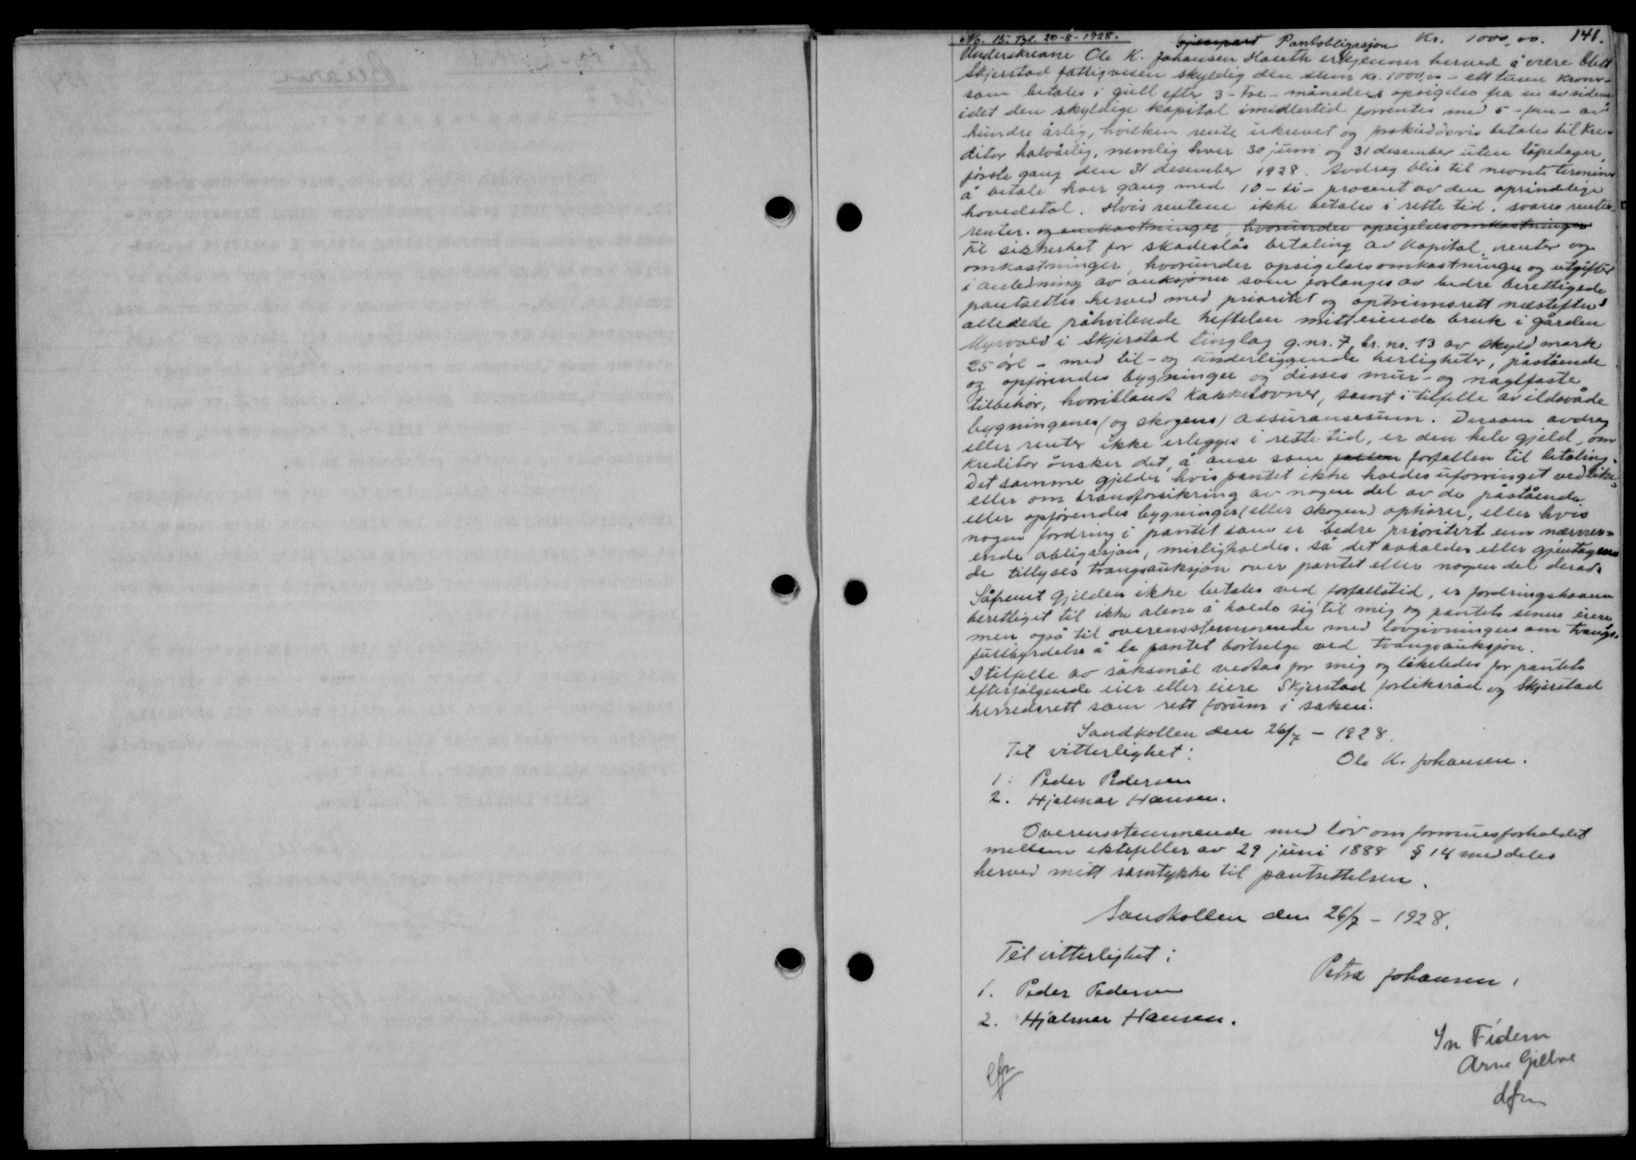 No. 15. Bl. 20-8-1928. Gjenpart Pantobligasjon Kr. 1000,00. 141.
Underskrevne Ole K. Johansen Haseth erkjenner herved å være blitt
Skjerstad fattigvesen skyldig den sum kr. 1000,00 - ett tusen kroner -
som betales i gull efter 3 - tre - måneders opsigelse fra en av sidene
idet den skyldige kapital imidlertid forrentes med 5 - fem - av
hundre årlig, hvilken rente ukrevet og forskuddsvis betales til kre-
ditor halvårlig, nemlig hver 30 juni og 31 desember uten løpedager,
første gang den 31 desember 1928. Avdrag blir til nevnte terminer
å betale hver gang med 10 - ti - procent av den oprindelige
hovedstol. Hvis rentene ikke betales i rette tid, svares renters-
renter. og omkostninger, hvorunder opsigelsesomkostninger
Til sikkerhet for skadesløs betaling av kapital, renter og
omkostninger, hvorunder opsigelsesomkostninger og utgifter
i anledning av auksjoner som forlanges av bedre berettigede
pantsettes herved med prioritet og optrinnsrett næstefter
allerede påhvilende heftelser mitt eiende bruk i gården
Myrvold i Skjerstad tinglag g.nr. 7, br. nr. 13 av skyld mark
25 øre - med til- og underliggende herligheter, påstående
og opførendes bygninger og disses mur- og naglfaste
tilbehør, hvoriblandt kakkelovner, samt i tilfelle av ildsvåde
bygningenes (og skogens) assuransesum. Dersom avdrag
eller renter ikke erlegges i rette tid, er den hele gjeld, om
kreditor ønsker det, å anse som forfallen til betaling.
Det samme gjelder hvis pantet ikke holdes uforringet vedlike,
eller om brandforsikring av nogen del av de påstående
eller opførendes bygninger (eller skogen) ophører, eller hvis
nogen fordring i pantet som er bedre prioritert enn nærvær-
ende obligasjon, misligholdes. så det avholdes eller gjentagen
de tillyses tvangsauksjon over pantet eller nogen del derav.
Såfremt gjelden ikke betales ved forfallstid, er fordringshaveren
berettiget til ikke alene å holde sig til mig og pantets senere eiere
men også til overensstemmende med lovgivningen om tvangs-
fullbyrdelse å la pantet bortselge ved tvangsauksjon.
I tilfelle av søksmål vedtas for mig og likeledes for pantets
efterfølgende eier eller eiere Skjerstad forliksråd og Skjerstad
herredsrett som rett forum i saken.
Sandkollen den 26/7 - 1928.
Til vitterlighet: Ole K. Johansen.
1. Peder Pedersen
2. Hjalmar Hansen.
Overensstemmende med lov om formuesforholdet
mellem ektefeller av 29 juni 1888 § 14 meddeles
herved mitt samtykke til pantsettelsen.
Sandkollen den 26/7 - 1928.
Til vitterlighet: Petra Johansen,
1. Peder Pedersen
2. Hjalmar Hansen.
In Fidem
Arne Gjelbve
dfm